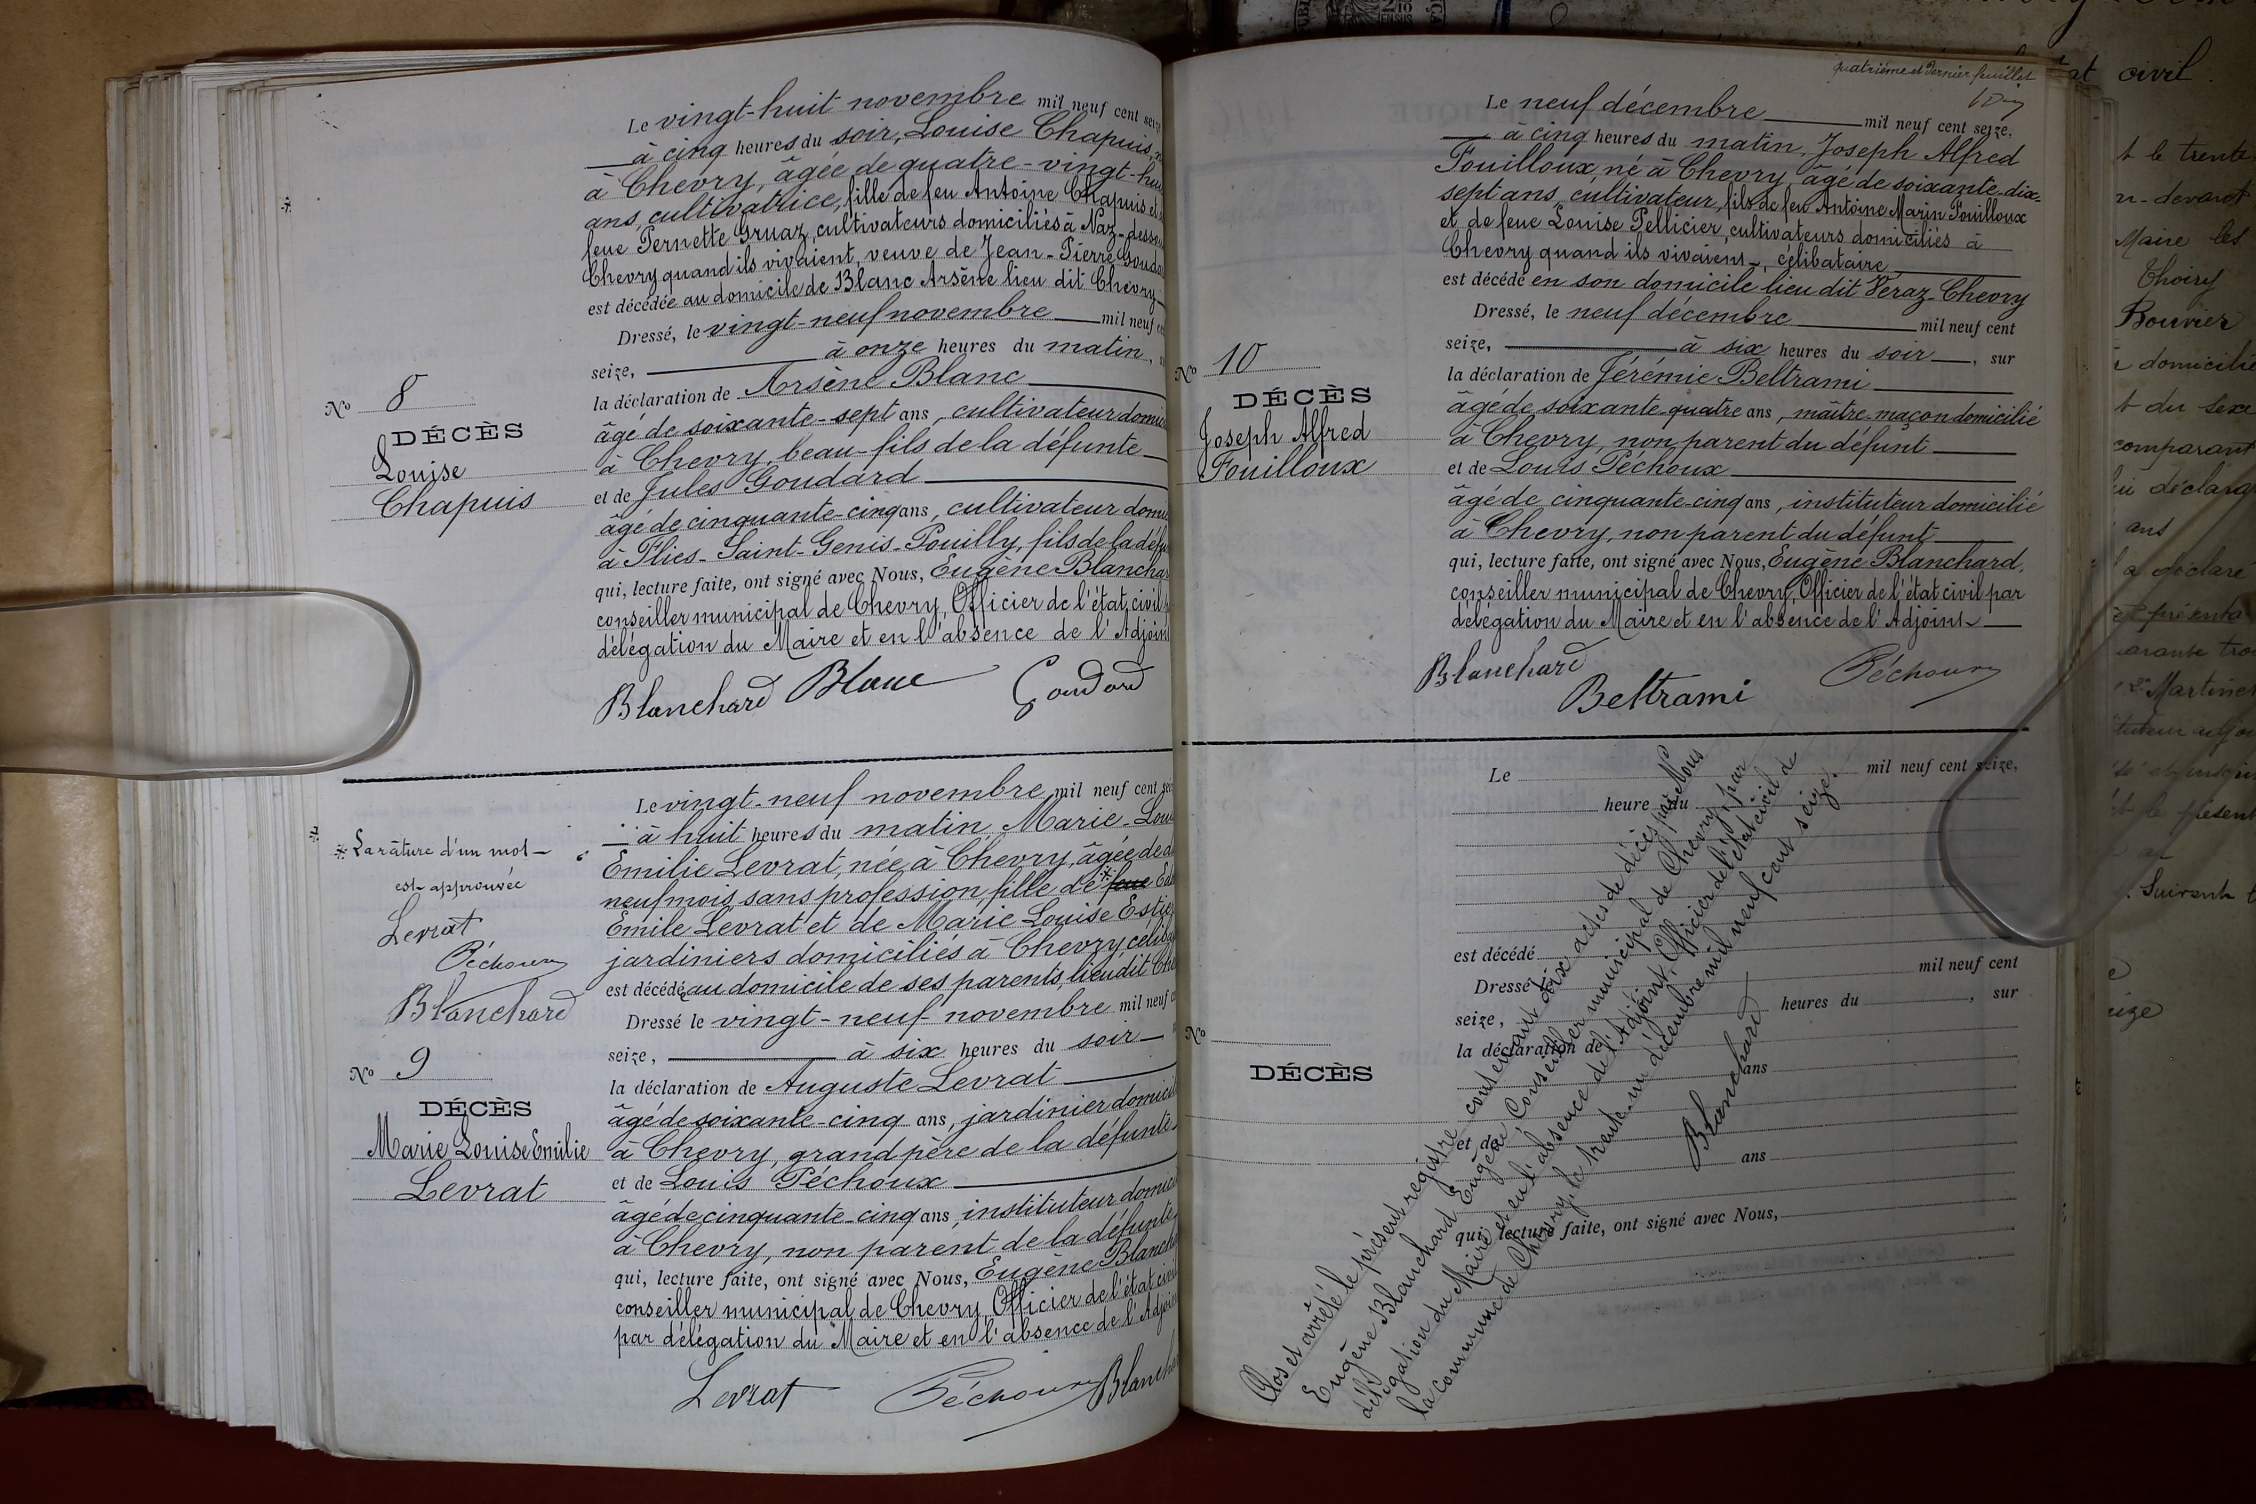 Le vingt-huit novembre mil neuf cent seize
à cinq heures du soir, Louise Chapuis,
à Chevry, âgée de quatre-vingt-huit
ans, cultivatrice, fille de feu Antoine Chapuis et de
feue Pernette Gruaz, cultivateurs domiciliés à Naz-dessous
Chevry quand ils vivaient, veuve de Jean-Pierre Goudard
est décédée au domicile de Blanc Arsène lieu dit Chevry
Dressé, le vingt-neuf novembre mil neuf cent
seize, à onze heures du matin,
la déclaration de Arsène Blanc
âgé de soixante-sept ans, cultivateur domicilié
à Chevry, beau-fils de la défunte
et de Jules Goudard
âgé de cinquante-cinq ans, cultivateur domicilié
à Flies-Saint-Genis-Pouilly, fils de la défunte
qui, lecture faite, ont signé avec Nous, Eugène Blanchard
conseiller municipal de Chevry, Officier de l'état civil
délégation du Maire et en l'absence de l'Adjoint
Blanchard Blanc Goudard
No 8
DÉCÈS
Louise
Chapuis
Le vingt-neuf novembre mil neuf cent seize
à huit heures du matin Marie-Louise
Emilie Levrat, née à Chevry, âgée de
neuf mois sans profession, fille de * feue
Emile Levrat et de Marie Louise
jardiniers domiciliés à Chevry, célibataire
est décédée au domicile de ses parents, lieu dit Chevry
Dressé le vingt-neuf novembre mil neuf cent
seize, à six heures du soir
la déclaration de Auguste Levrat
âgé de soixante-cinq ans, jardinier domicilié
à Chevry, grand père de la défunte
et de Louis Péchoux
âgé de cinquante-cinq ans, instituteur domicilié
à Chevry, non parent de la défunte
qui, lecture faite, ont signé avec Nous, Eugène Blanchard
conseiller municipal de Chevry, Officier de l'état civil
par délégation du Maire et en l'absence de l'Adjoint
Levrat Péchoux Blanchard
* La râture d'un mot
est approuvée
Levrat
Péchoux
Blanchard
No 9
DÉCÈS
Marie Louise Emilie
Levrat
quatrième et dernier feuillet
Le neuf décembre mil neuf cent seize,
à cinq heures du matin, Joseph Alfred
Fouilloux, né à Chevry âgé de soixante-dix-
sept ans, cultivateur, fils de feu Antoine Marin Fouilloux
et de feue Louise Pellicier, cultivateurs domiciliés à
Chevry quand ils vivaient, célibataire
est décédé en son domicile lieu dit Véraz-Chevry
Dressé, le neuf décembre mil neuf cent
seize, à six heures du soir, sur
la déclaration de Jérémie Beltrami
âgé de soixante-quatre ans, maître-maçon domicilié
à Chevry, non parent du défunt
et de Louis Péchoux
âgé de cinquante-cinq ans, instituteur domicilié
à Chevry, non parent du défunt
qui, lecture faite, ont signé avec Nous, Eugène Blanchard,
conseiller municipal de Chevry, Officier de l'état civil par
délégation du Maire et en l'absence de l'Adjoint
Blanchard Beltrami Péchoux
No 10
DÉCÈS
Joseph Alfred
Fouilloux
Le mil neuf cent seize,
heure du
est décédé
Dressé le mil neuf cent
seize, heures du , sur
la déclaration de
ans
et de
ans
qui, lecture faite, ont signé avec Nous,
No
DÉCÈS
Clos et arrêté le présent registre contenant dix actes de décès par Nous
Eugène Blanchard Eugène Conseiller municipal de Chevry, par
délégation du Maire et en l'absence de l'Adjoint, Officier de l'état civil de
la commune de Chevry, le trente-un décembre mil neuf cent seize.
Blanchard
civil
le trente
devant
Maire
Thoiry
Bouvier
domicilié
du sexe
comparant
déclara
ans
a déclaré
Martinet
le présent